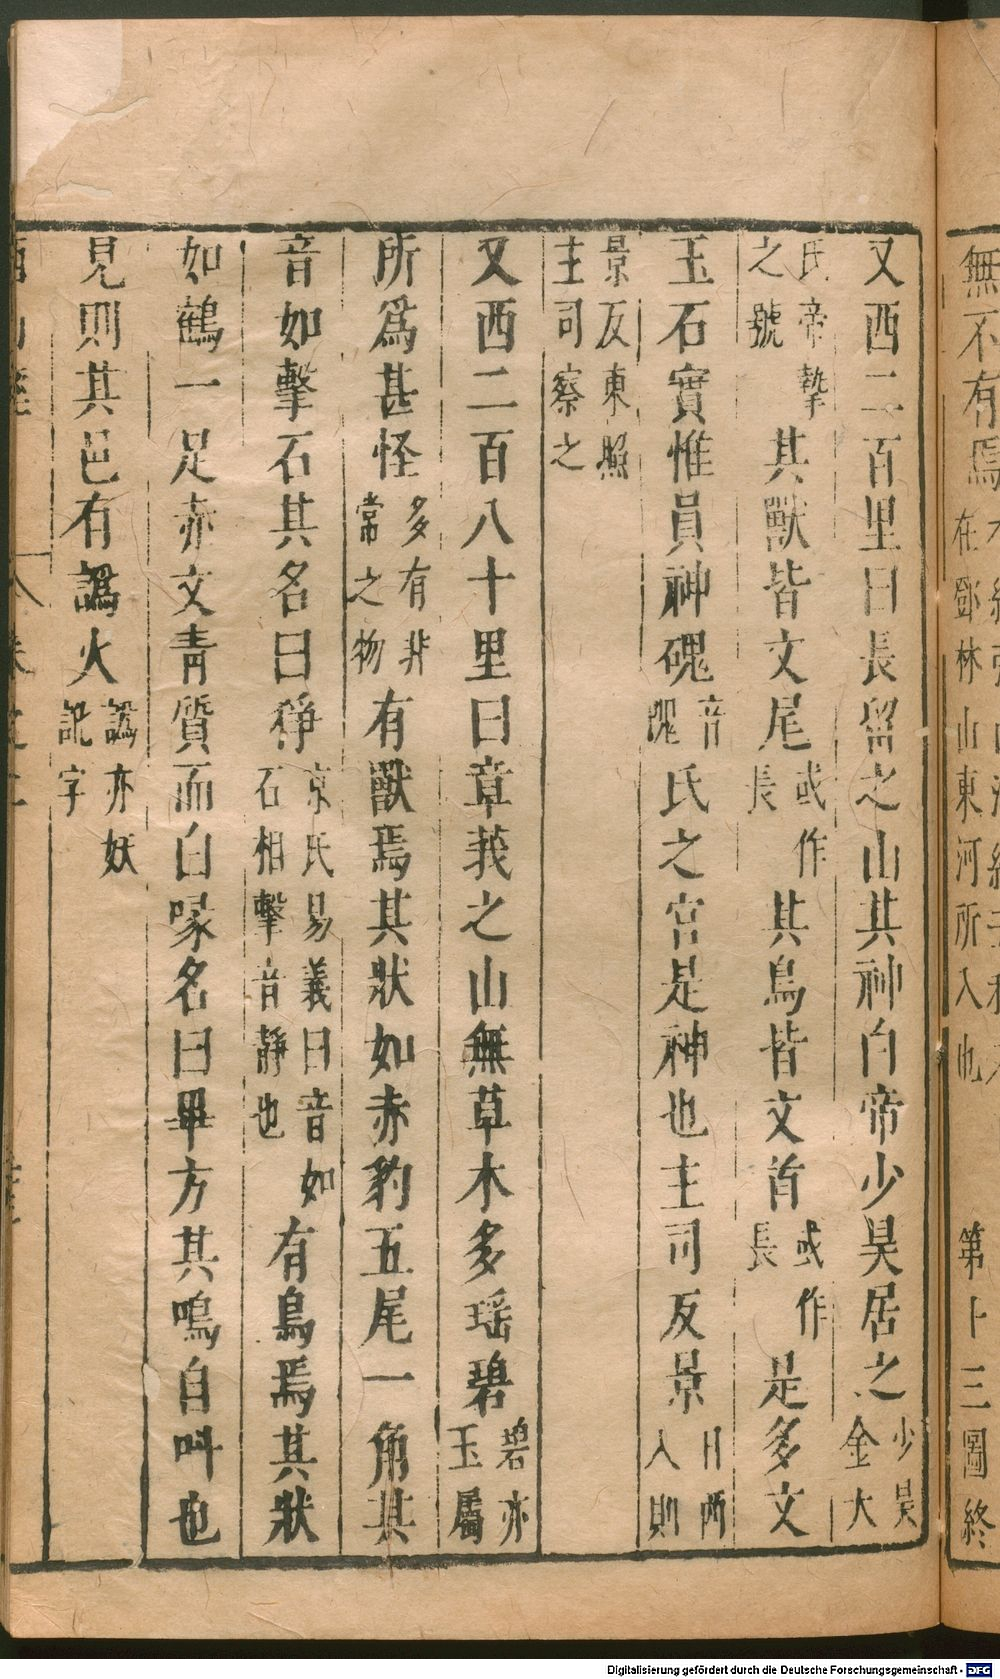 無不有焉
在鄧林山東河所入也
第十三圖終
又西二百里曰長留之山其神白帝少昊居之少昊金大
氏帝摯之號其獸皆文尾或作長其鳥皆文首或作長是多文
玉石實惟員神磈音隗氏之宮是神也主司反景日西入則
景反東照主司察之
又西二百八十里曰章莪之山無草木多瑶碧碧亦玉屬
所爲甚怪多有非常之物有獸焉其狀如赤豹五尾一角其
音如擊石其名曰猙京氏易義曰音如石相擊音靜也有鳥焉其狀
如鶴一足赤文青質而白喙名曰畢方其鳴自叫也
見則其邑有譌火譌亦妖訛字
Digitalisierung gefördert durch die Deutsche Forschungsgemeinschaft - DFG